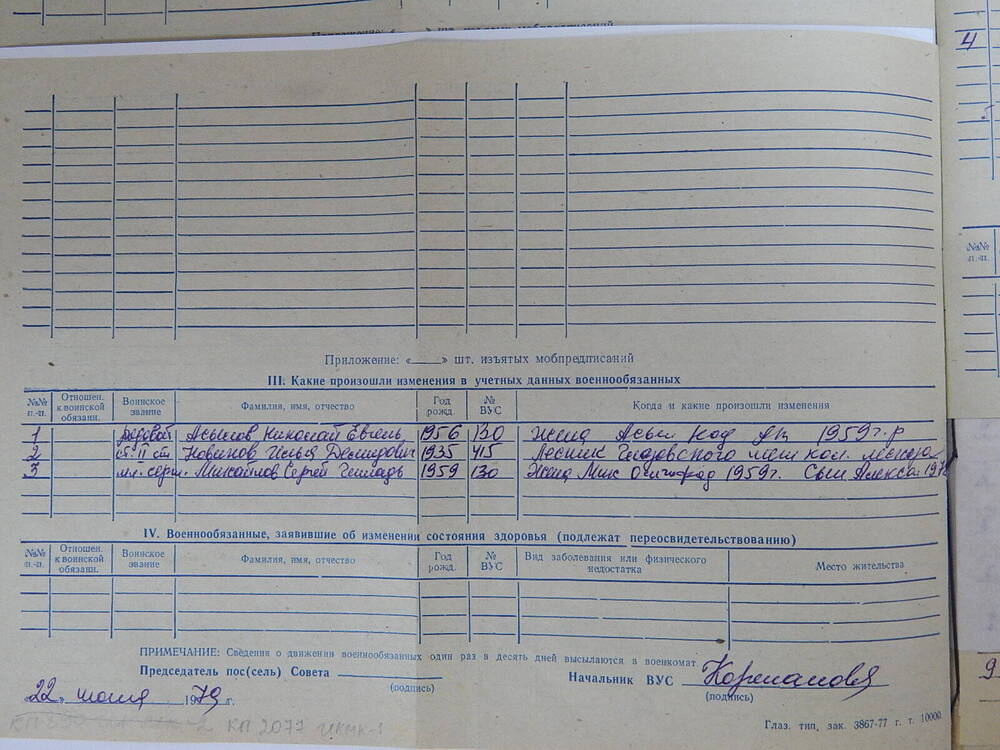 4
Приложение: «___» шт. изъятых мобпредписаний
III. Какие произошли изменения в учетных данных военнообязанных
№№ п.-п. Отношен. к воинской обязанн. Воинское звание Фамилия, имя, отчество Год рожд. № ВУС Когда и какие произошли изменения
1 рядовой Николай Евгень 1956 130 1959 г.р
2 Новиков Илья 1935 415 Лесник
3 мл. серж. Михайлов Сергей Геннадь 1959 130 Жена 1959г. Сын
IV. Военнообязанные, заявившие об изменении состояния здоровья (подлежат переосвидетельствованию)
№№ п.-п. Отношен. к воинской обязанн. Воинское звание Фамилия, имя, отчество Год рожд. № ВУС Вид заболевания или физического недостатка Место жительства
ПРИМЕЧАНИЕ: Сведения о движении военнообязанных один раз в десять дней высылаются в военкомат.
Председатель пос(сель) Совета
(подпись)
Начальник ВУС
(подпись)
22 1979 г.
КП 2077
Глаз. тип, зак. 3867-77 г. т. 10000
№№ п.-п.
9